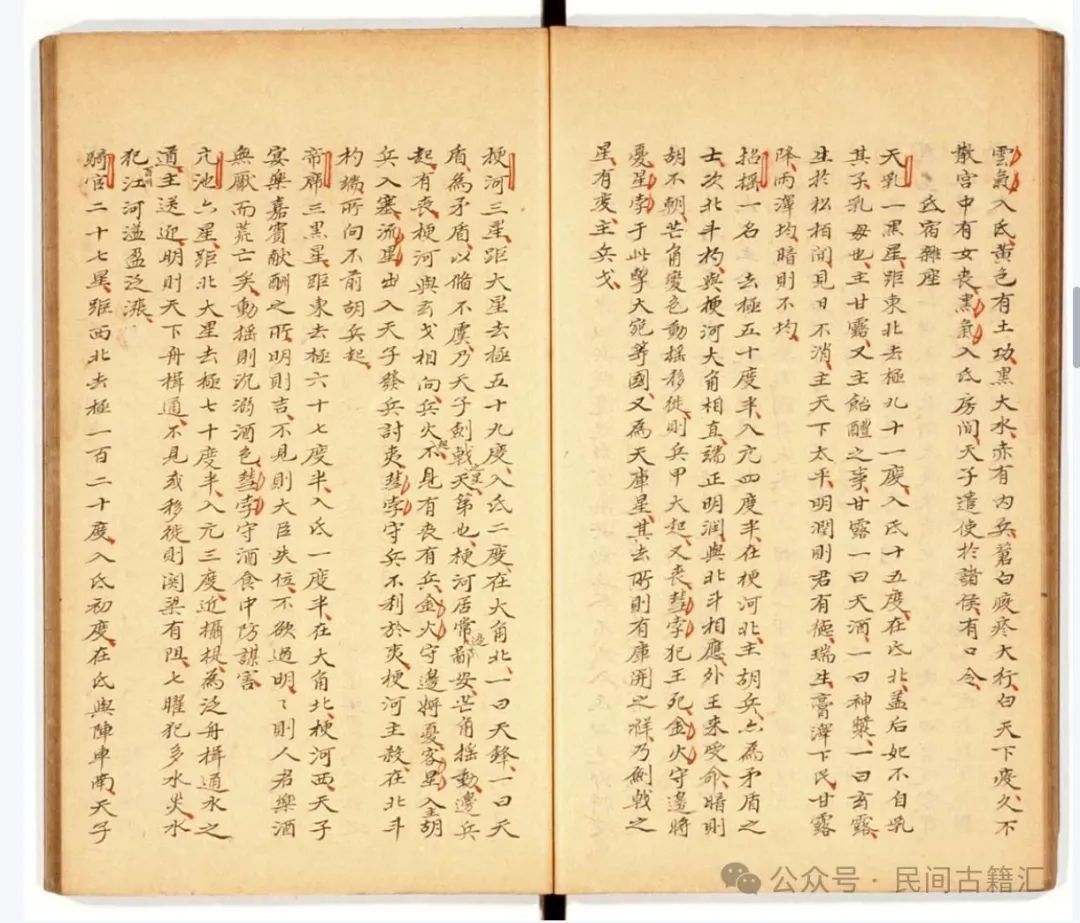 雲氣入氐黃色有土功黑大水赤有內兵蒼白疾疫大行白天下疫久不
散宮中有女喪黑氣入氐房間天子遣使於諸侯有口令
氐宿雜座
天乳一黑星距東北去極九十一度入氐十五度在氐北蓋后妃不自乳
其子乳母也主甘露又主飴醴之事甘露一曰天酒一曰神漿一曰玄露
生於松柏間見日不消主天下太平明潤則君有德瑞生膏澤下民甘露
降雨澤均暗則不均
招搖一名 去極五十度半入亢四度半在梗河北主胡兵亦為矛盾之
士次北斗杓與梗河大角相直端正明潤與北斗相應外王來受命暗則
胡不朝芒角變色動搖移徙則兵甲大起又喪彗孛犯王死金火守邊將
憂星孛于此擊大宛等國又為天庫星其去所則有庫開之祥乃劍戟之
星有變主兵戈
梗河三星距大星去極五十九度入氐二度在大角北一曰天鋒一曰天
盾為矛盾以備不虞乃天子劍戟之星天第也梗河居常邊鄙安芒角搖動邊兵
起有喪梗河與玄戈相向兵火起不見有喪有兵金火守邊將憂客星入主胡
兵入塞流星出入天子發兵討夷彗孛守兵不利於夾梗河主殺在北斗
杓端所向不前胡兵起
帝席三黑星距東去極六十七度半入氐一度半在大角北梗河西天子
宴樂嘉賓獻酬之所明則吉不見則大臣失位不欲過明〻則人君樂酒
無厭而荒亡矣動搖則沉溺酒色彗孛守酒食中防謀害
亢池六星距北大星去極七十度半入亢三度近攝提為泛舟楫通水之
道主送迎明則天下舟楫通不見或移徙則關梁有阻七曜犯多水災水
犯江河溢盈泛漲
騎官二十七星距西北去極一百二十度入氐初度在氐與陣車南天子
公众号·民间古籍汇